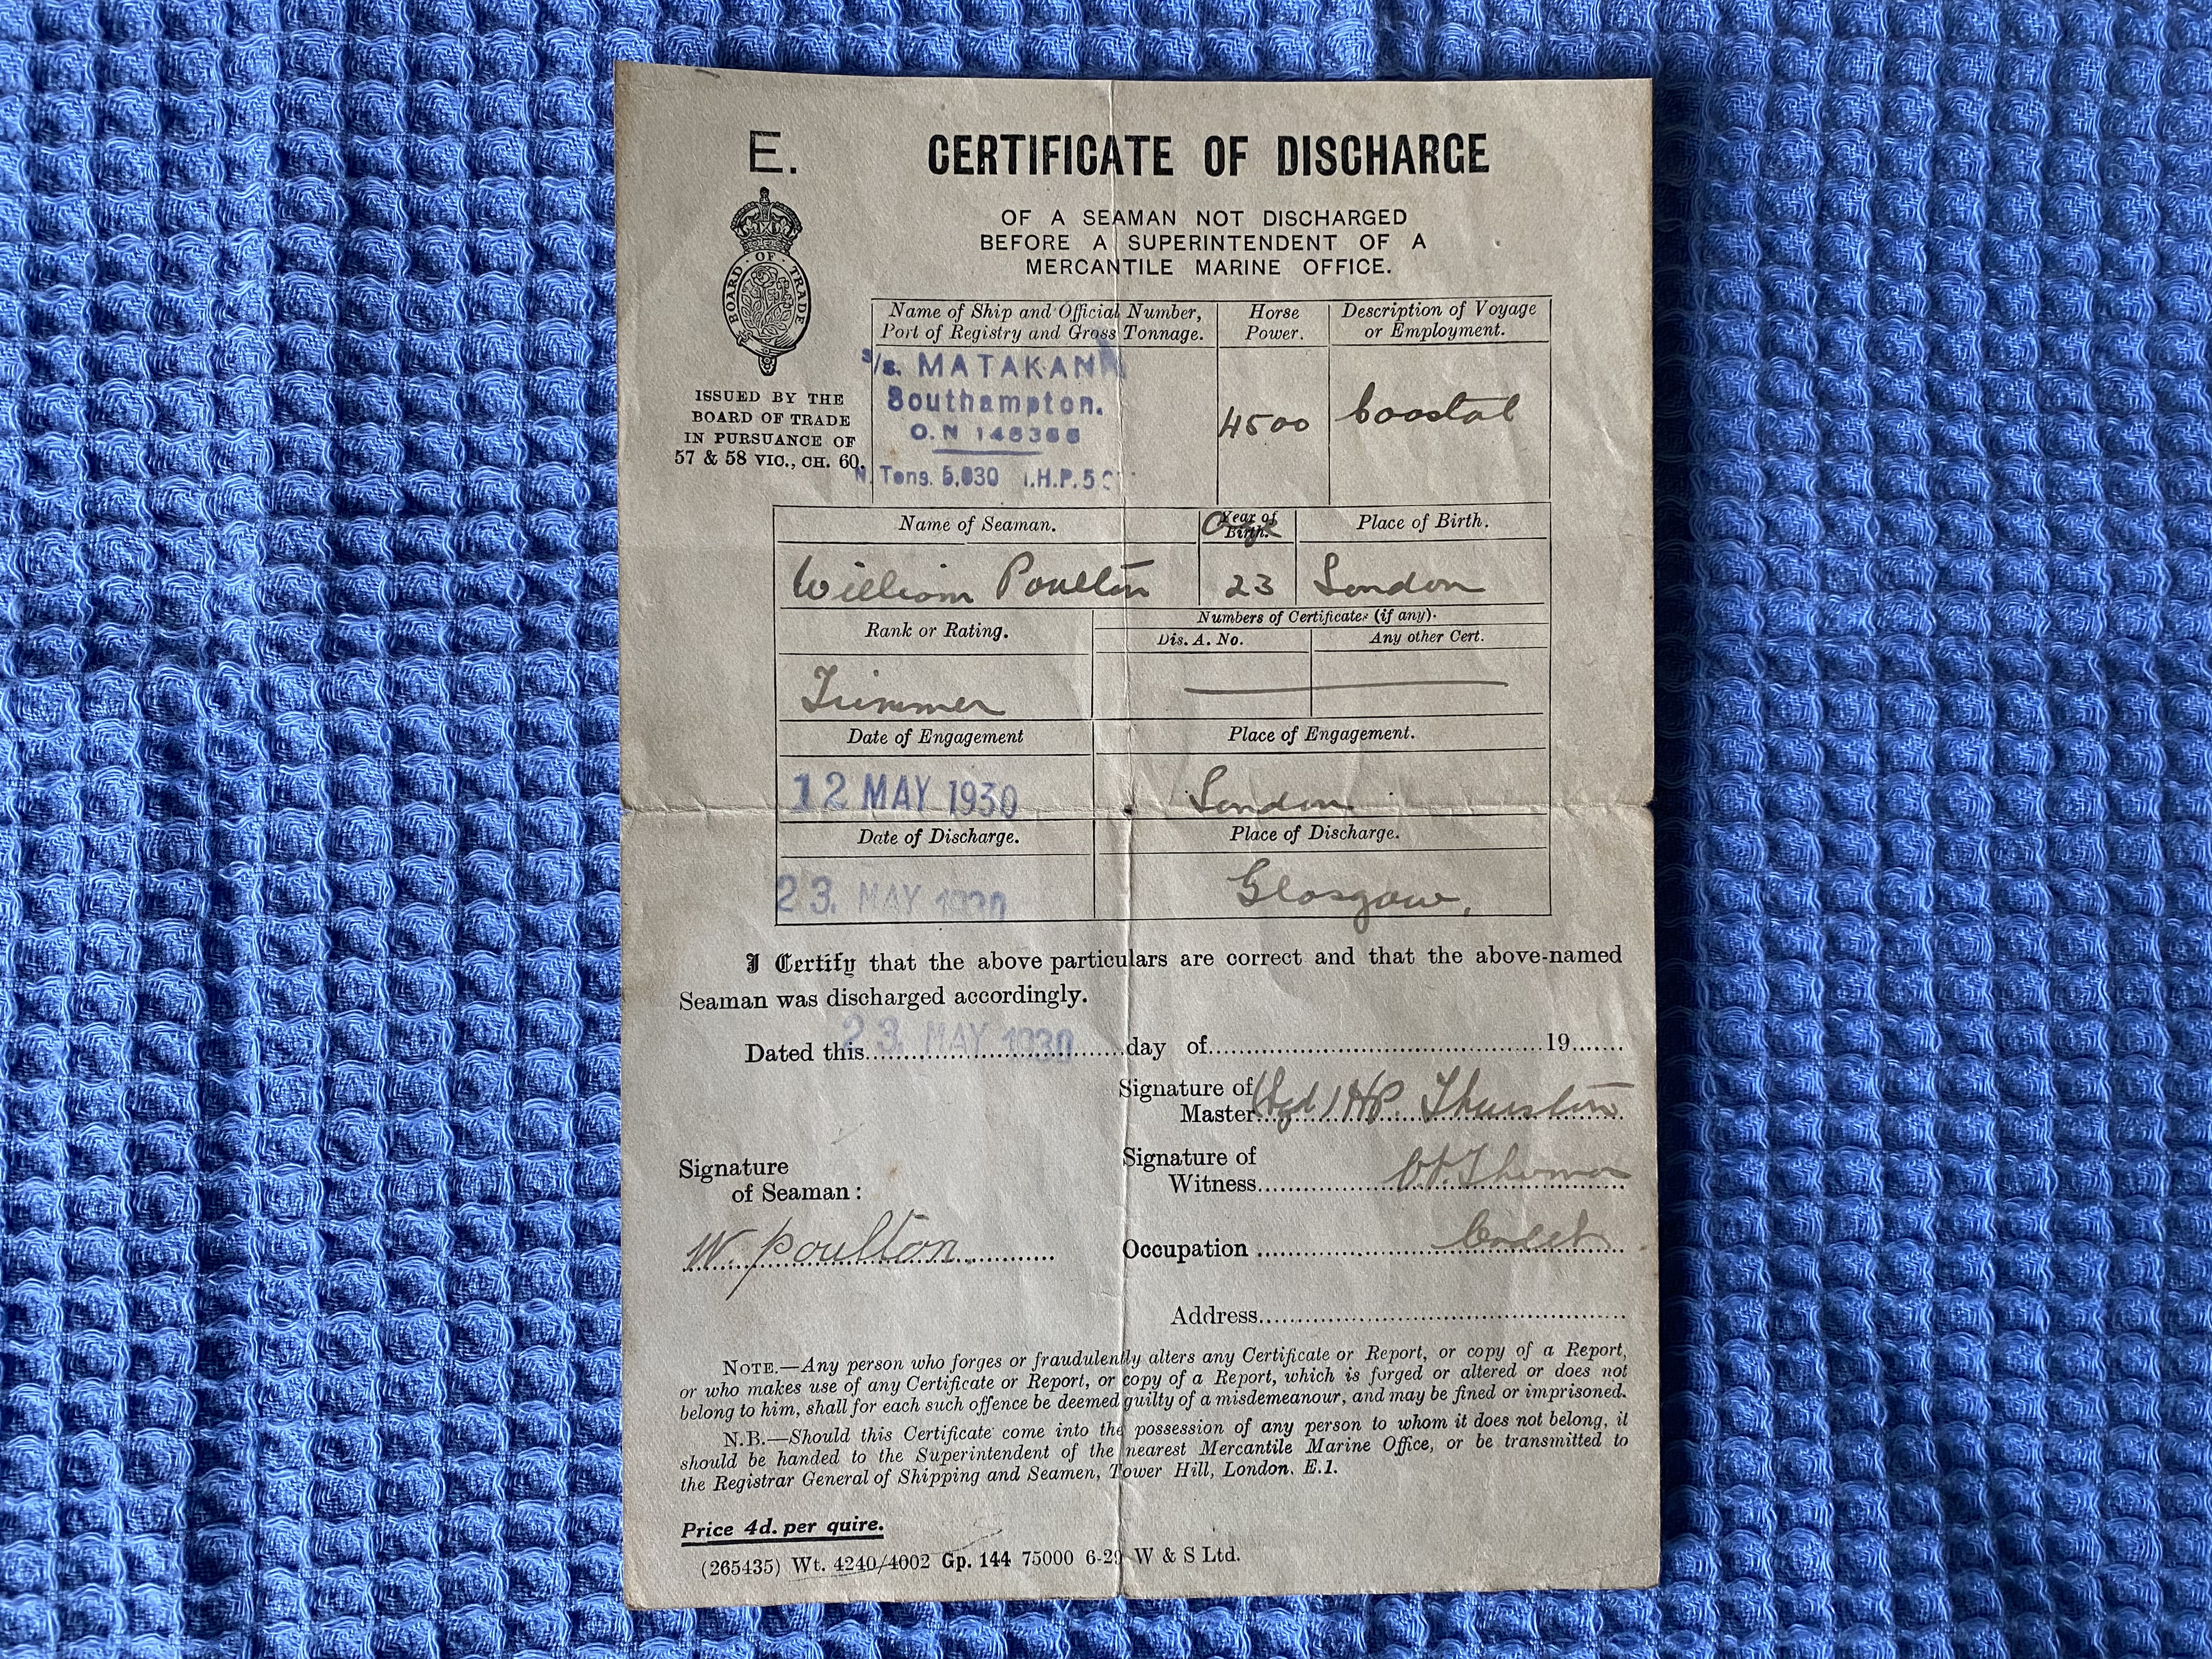 E.
CERTIFICATE OF DISCHARGE
OF A SEAMAN NOT DISCHARGED
BEFORE A SUPERINTENDENT OF A
MERCANTILE MARINE OFFICE.
BOARD OF TRADE
ISSUED BY THE
BOARD OF TRADE
IN PURSUANCE OF
57 & 58 VIC., CH. 60.
Name of Ship and Official Number,
Port of Registry and Gross Tonnage.
Horse
Power.
Description of Voyage
or Employment.
s/s. MATAKANA
Southampton.
O.N
N. Tons. I.H.P.
4500
Coastal
Name of Seaman.
Year of
Birth.
Age
Place of Birth.
William Poulton
23
London
Rank or Rating.
Numbers of Certificates (if any).
Dis. A. No.
Any other Cert.
Trimmer
Date of Engagement
Place of Engagement.
12 MAY 1930
London
Date of Discharge.
Place of Discharge.
23. MAY 1930
Glasgow,
I Certify that the above particulars are correct and that the above-named
Seaman was discharged accordingly.
Dated this 23. MAY 1930 day of 19
Signature of
Master (Sgd) H.P. Thurston
Signature
of Seaman:
Signature of
Witness
W. Poulton
Occupation Cadet
Address
NOTE.—Any person who forges or fraudulently alters any Certificate or Report, or copy of a Report,
or who makes use of any Certificate or Report, or copy of a Report, which is forged or altered or does not
belong to him, shall for each such offence be deemed guilty of a misdemeanour, and may be fined or imprisoned.
N.B.—Should this Certificate come into the possession of any person to whom it does not belong, it
should be handed to the Superintendent of the nearest Mercantile Marine Office, or be transmitted to
the Registrar General of Shipping and Seamen, Tower Hill, London. E.1.
Price 4d. per quire.
(265435) Wt. 4240/4002 Gp. 144 75000 6-29 W & S Ltd.